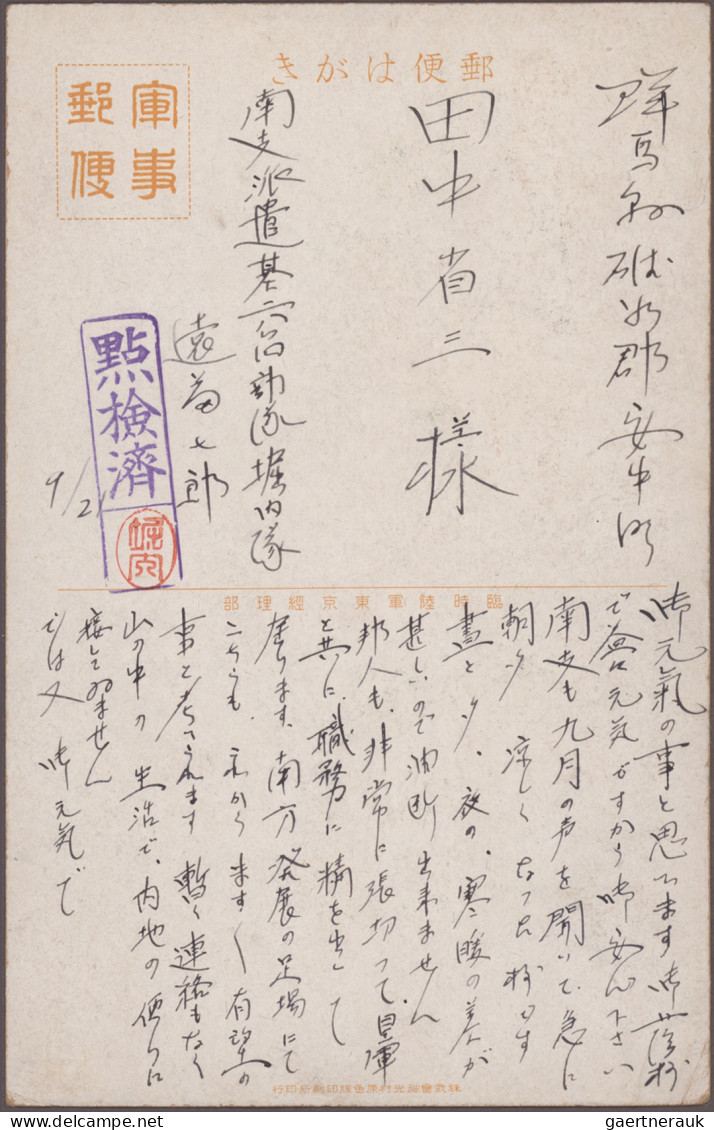 郵便はがき
軍事郵便
群馬県碓氷郡安中町
田中省三様
南支派遣基六〇部隊堀内隊
七郎
點檢濟
堀内
9/21
臨時陸軍東京經理部
御元氣の事と思ひます 御蔭様
で元気ですから御安心下さい
南支も九月の声を聞いて、急に
朝夕 凉しくなつた様です
晝と夕、夜の、寒暖の差が
甚しいので油断出来ません
邦人も、非常に張切つて、皇軍
と共に、職務に精を出して
居ります、南方発展の足場にて
こちらも、これからますます有望の
事と考へられます 暫く連絡もなく
山の中の生活で、内地の便りに
接して居ません
では又 御元気で
株式會社光村原色版印刷所印行
gaertnerauk
© www.delcampe.net